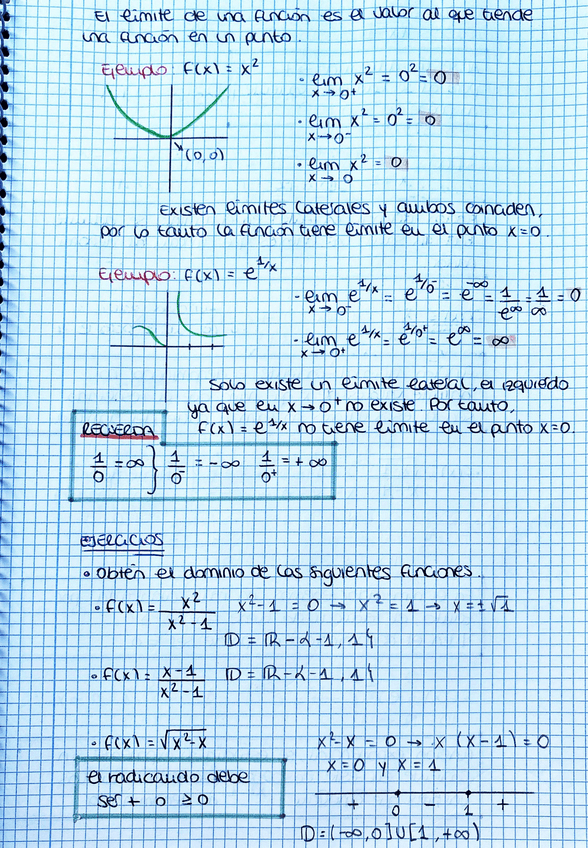 El límite de una función es el valor al que tiende
una función en un punto.
Ejemplo: f(x) = x²
(0,0)
· lim x² = 0² = 0
x → 0⁺
· lim x² = 0² = 0
x → 0⁻
· lim x² = 0
x → 0
Existen límites laterales y ambos coinciden,
por lo tanto la función tiene límite en el punto x=0.
Ejemplo: f(x) = e^1/x
· lim e^1/x = e^1/0⁻ = e^-∞ = 1/e^∞ = 1/∞ = 0
x → 0⁻
· lim e^1/x = e^1/0⁺ = e^∞ = ∞
x → 0⁺
Solo existe un límite lateral, el izquierdo
ya que en x → 0⁺ no existe. Por tanto,
f(x) = e^1/x no tiene límite en el punto x=0.
RECUERDA
1/0 = ∞ } 1/0⁻ = -∞ 1/0⁺ = +∞
EJERCICIOS
• Obtén el dominio de las siguientes funciones.
• f(x) = x²/x²-1 x²-1 = 0 → x² = 1 → x = ±√1
D = R - {-1, 1}
• f(x) = x-1/x²-1 D = R - {-1, 1}
• f(x) = √x²-x x²-x = 0 → x (x-1) = 0
x=0 y x=1
el radicando debe
ser + o ≥0
+ 0 - 1 +
D = (-∞,0] U [1, +∞)